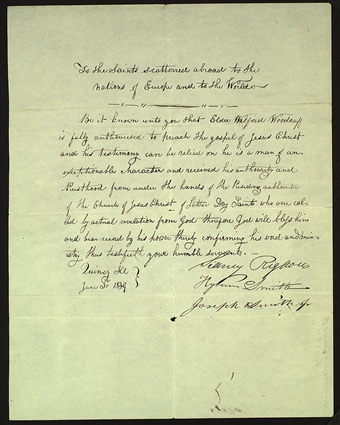 To the Saints scatterred abroad to the
nations of Europe and to the World
Be it known unto you that Elder Wilford Woodruff
is fully authorised to preach the gospel of Jesus Christ
and his testimony can be relied on he is a man of un-
exceptionable character and received his authority and
Priesthood from under the hands of the Presiding authorities
of the Church of Jesus Christ of Latter Day Saints who are cal-
led by actual revelation from God therefore God will bless him
and bear record by his power thereby confirming his word and min-
istry thus testifieth your humble servants.
Quincy Ill
June 3d 1839
Sidney Rigdon
Hyrum Smith
Joseph Smith jr